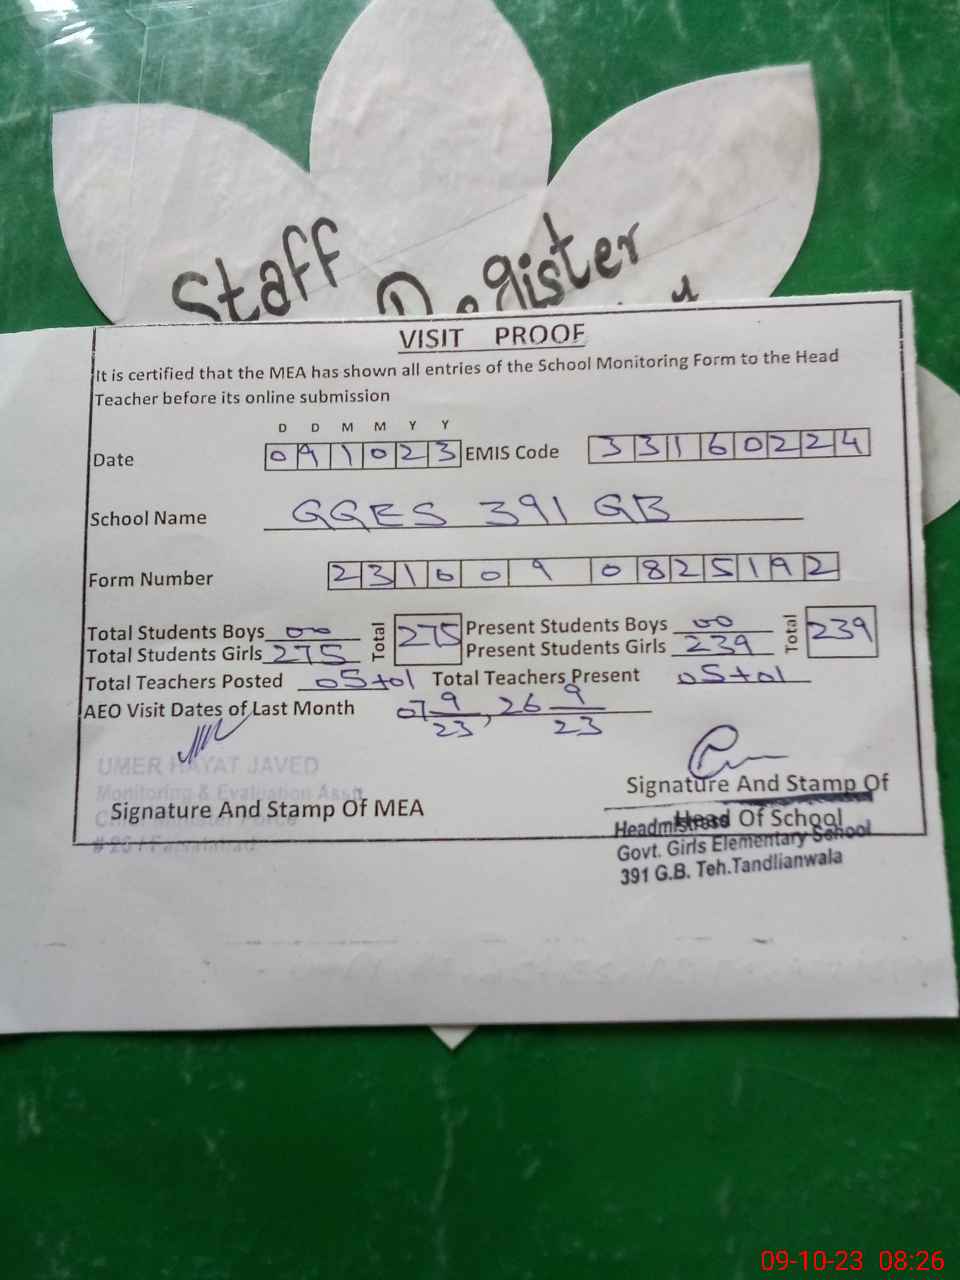 Staff
Register
VISIT PROOF
It is certified that the MEA has shown all entries of the School Monitoring Form to the Head
Teacher before its online submission
D D M M Y Y
Date 091023 EMIS Code 33160224
School Name GGES 391 GB
Form Number 231009 0825192
Total Students Boys 00 Total 275 Present Students Boys 00 Total 239
Total Students Girls 275 Present Students Girls 239
Total Teachers Posted 05+01 Total Teachers Present 05+01
AEO Visit Dates of Last Month 07 9/23, 26 9/23
UMER HAYAT JAVED
Monitoring & Evaluation Asstt
Signature And Stamp Of MEA
Signature And Stamp Of
Head Of School
Headmistress
Govt. Girls Elementary School
391 G.B. Teh.Tandlianwala
09-10-23 08:26